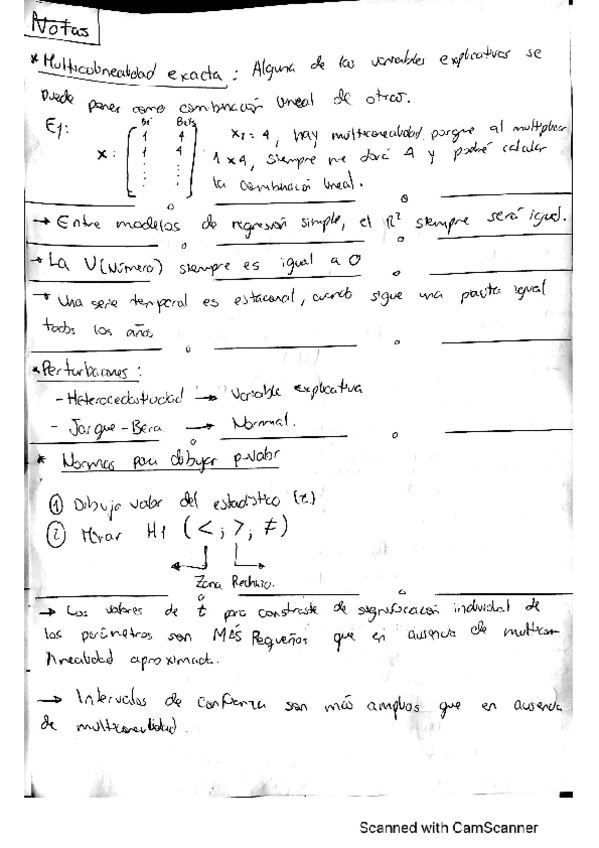 Notas
* Multicolinealidad exacta : Alguna de las variables explicativas se
Puede poner como combinación lineal de otras.
Ej:
X:
1 4
1 4
X2 = 4, hay multiconealidad porque al multiplicar
1 x 4, siempre me dará 4 y podré calcular
la combinación lineal.
→ Entre modelos de regresión simple, el R² siempre será igual.
→ La V(Número) siempre es igual a 0
→ Una serie temporal es estacional, cuando sigue una pauta igual
todos los años
* Perturbaciones :
- Heterocedasticidad → Variable explicativa
- Jarque-Bera → Normal.
* Normas para dibujar p-valor
① Dibujo valor del estadístico (t)
② Mirar H1 ( < ; > ; ≠ )
Zona Rechazo.
→ Los valores de t para contraste de significación individual de
los parámetros son MÁS Pequeños que en ausencia de multicon
linealidad aproximada.
→ Intervalos de confianza son más amplios que en ausencia
de multiconealidad.
Scanned with CamScanner